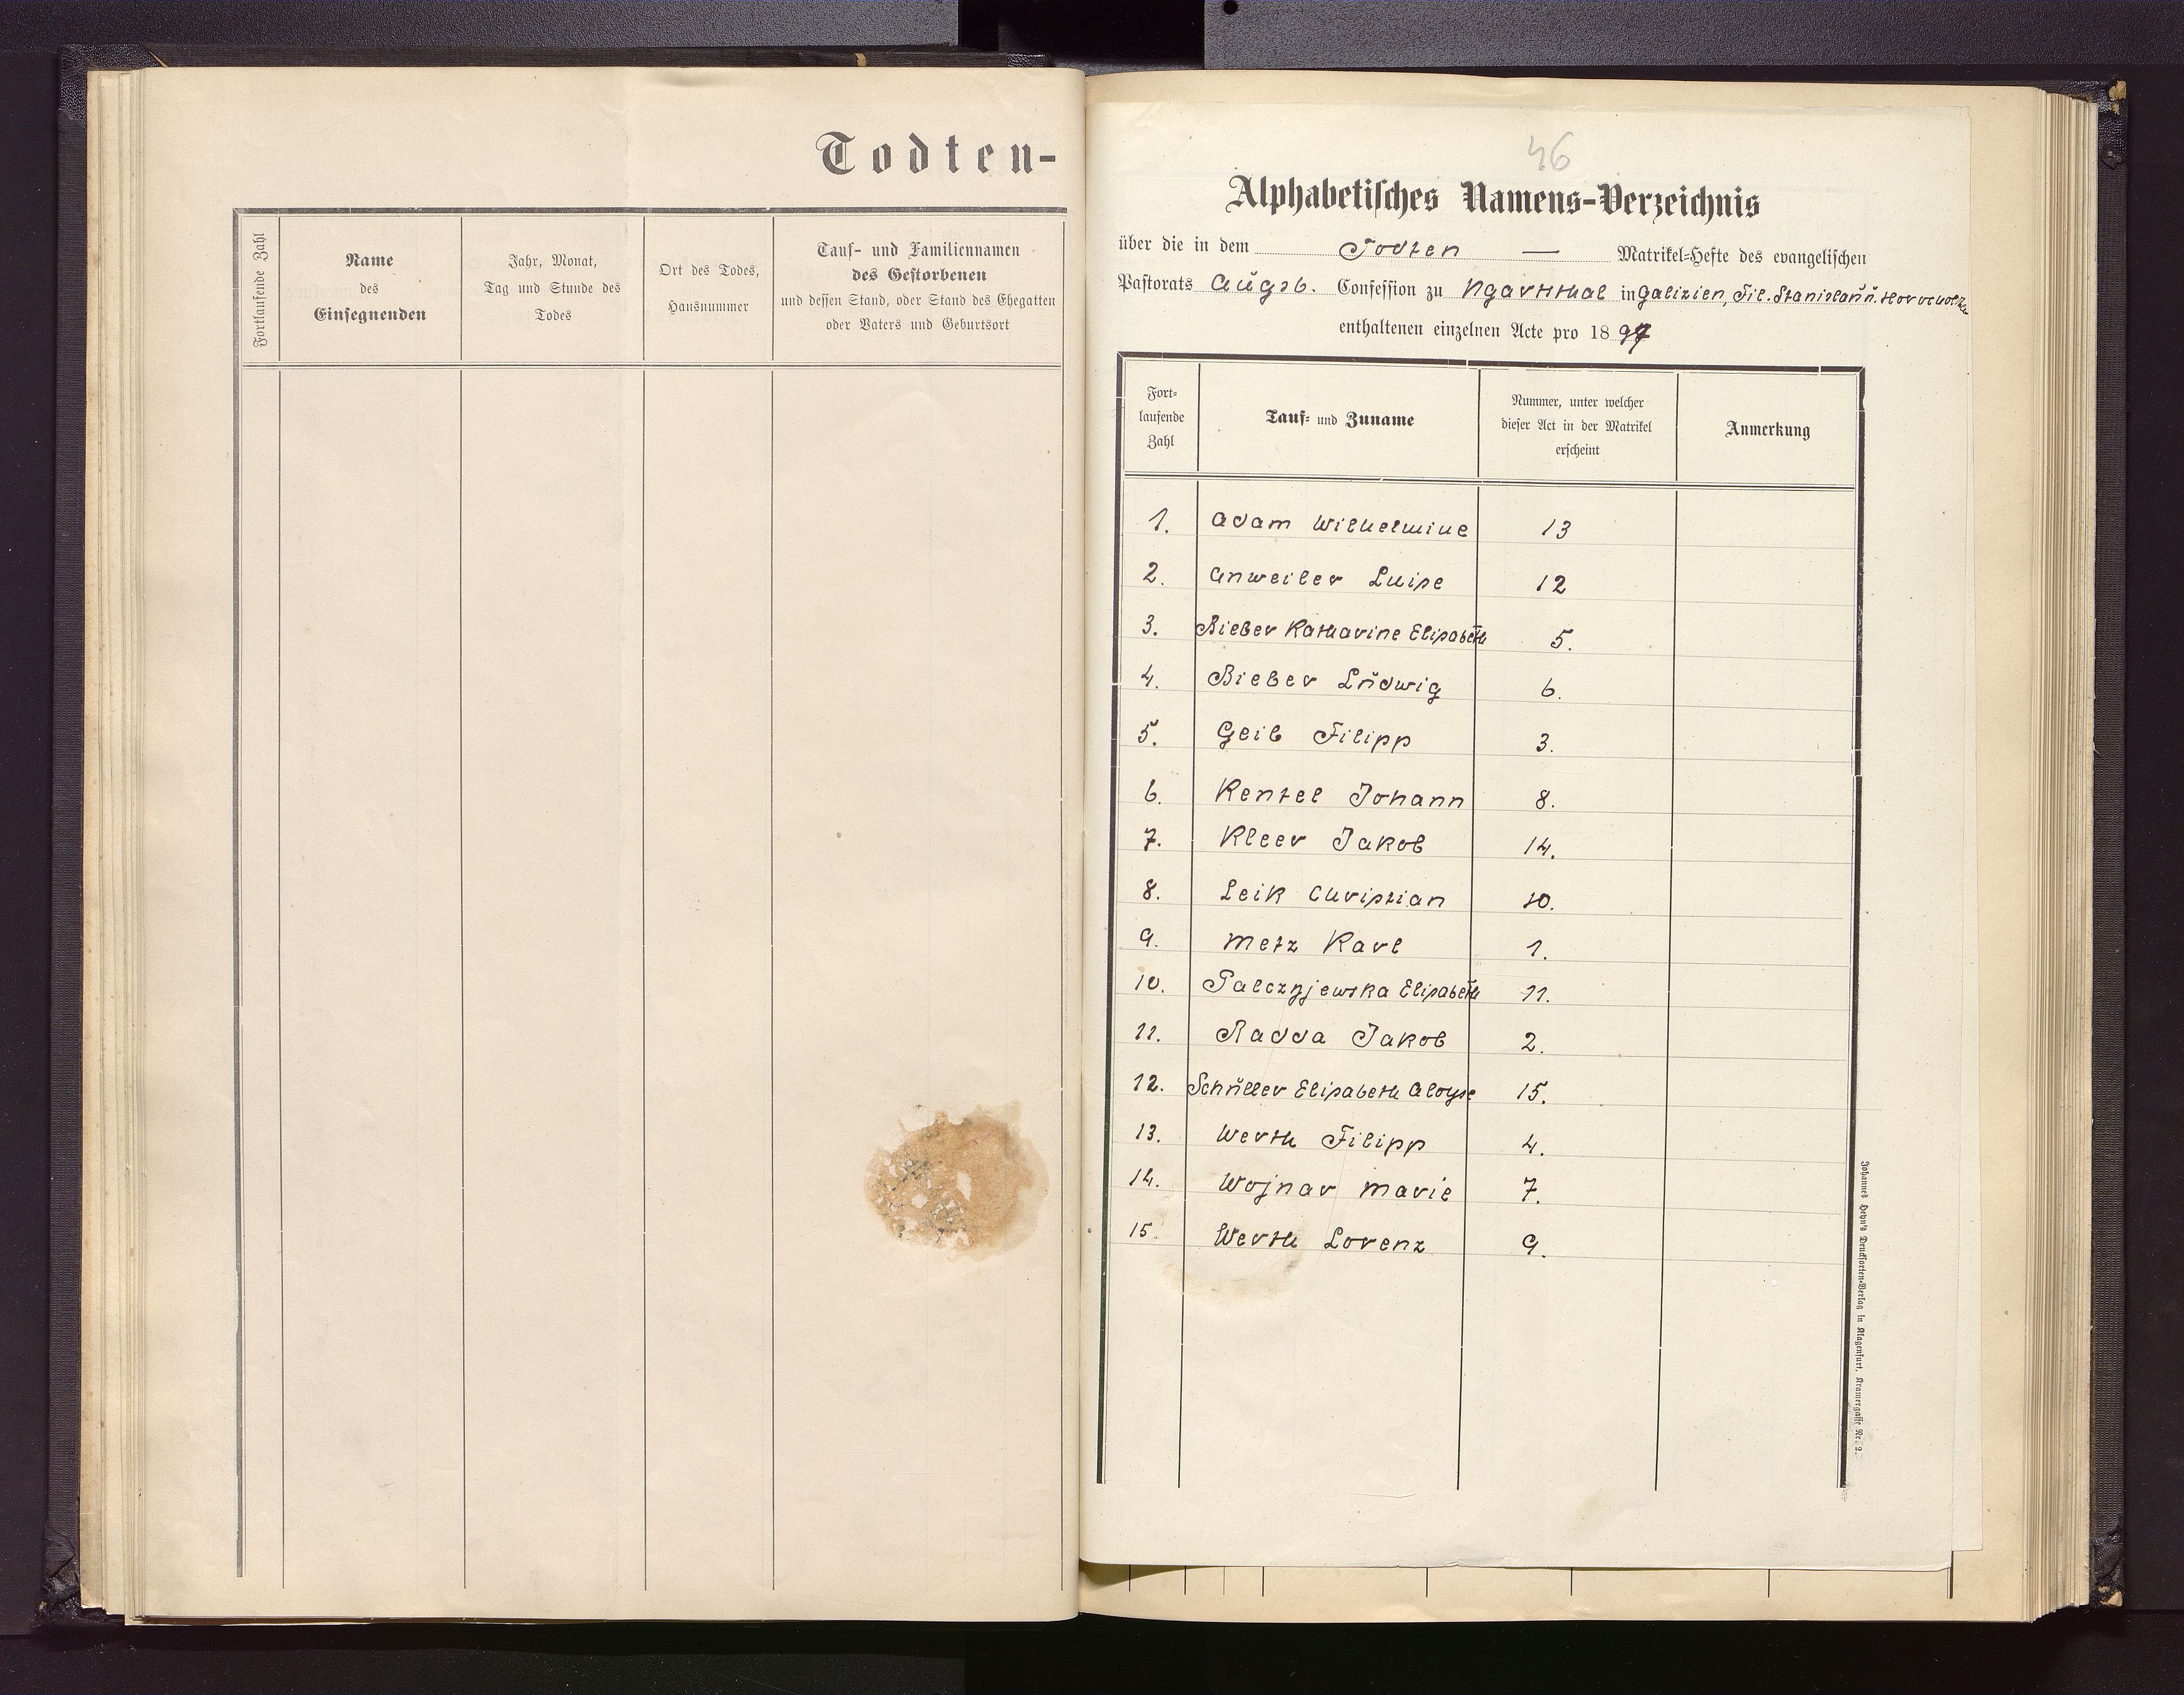 Todten-
Fortlaufende Zahl
Name
des
Einsegnenden
Jahr, Monat,
Tag und Stunde des
Todes
Ort des Todes,
Hausnummer
Tauf- und Familiennamen
des Gestorbenen
und dessen Stand, oder Stand des Ehegatten
oder Vaters und Geburtsort
46
Alphabetisches Namens-Verzeichnis
über die in dem Todten — Matrikel-Hefte des evangelischen
Pastorats Augsb. Confession zu Ugartsthal in Galizien, Fil. Stanislau u.
enthaltenen einzelnen Acte pro 1897
Fort-
laufende
Zahl
Tauf- und Zuname
Nummer, unter welcher
dieser Act in der Matrikel
erscheint
Anmerkung
1. Adam Wilhelmine 13
2. Anweiler Luise 12
3. Bieber Katharine Elisabeth 5.
4. Bieber Ludwig 6.
5. Geib Filipp 3.
6. Kentel Johann 8.
7. Kleer Jakob 14.
8. Leik Christian 10.
9. Metz Karl 1.
10. Palczyjewska Elisabeth 11.
11. Radda Jakob 2.
12. Schuller Elisabeth Aloyse 15.
13. Werth Filipp 4.
14. Wojnar Marie 7.
15. Werth Lorenz 9.
Johannes Heyn's Drucksorten-Verlag in Klagenfurt, Kramergasse Nr. 2.